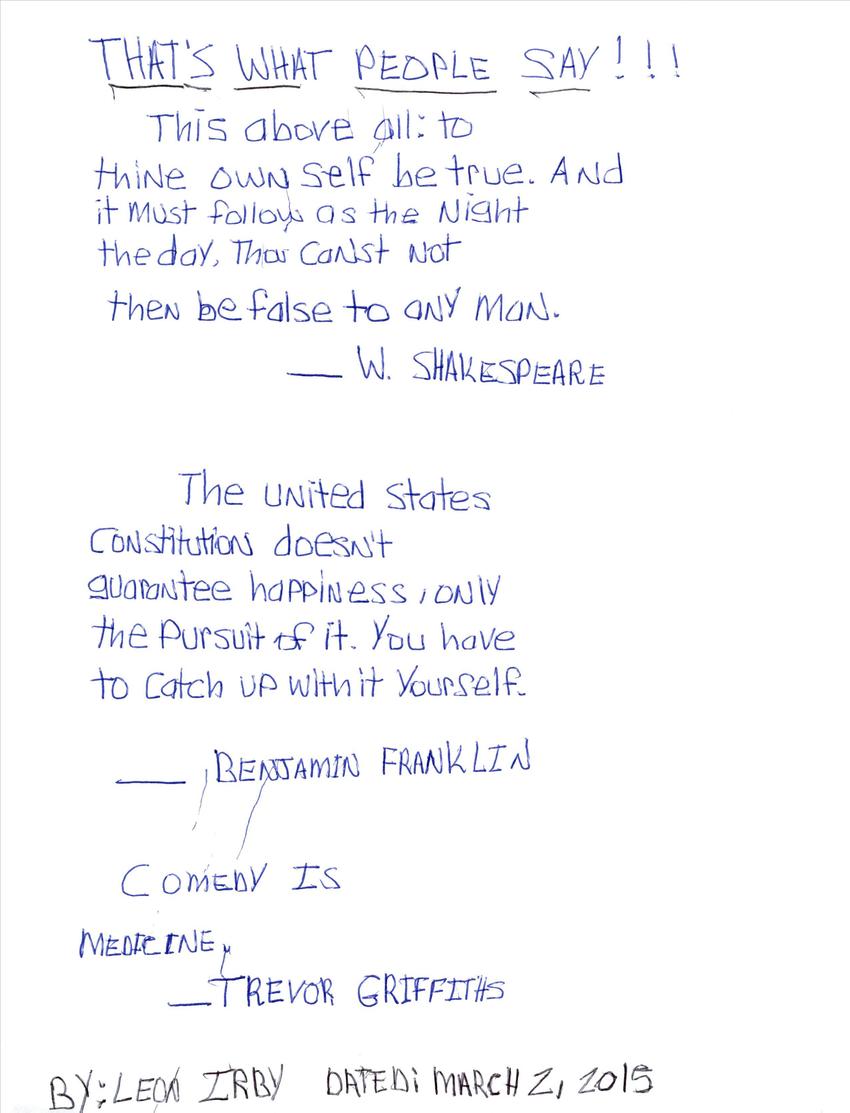 THAT'S WHAT PEOPLE SAY!!!
This above all: to
thine own self be true. And
it must follow as the Night
the day, Thou Canst not
then be false to any man.
— W. SHAKESPEARE
The United States
Constitution doesn't
guarantee happiness, only
the Pursuit of it. You have
to Catch up with it Yourself.
— BENJAMIN FRANKLIN
COMEDY IS
MEDICINE,
— TREVOR GRIFFITHS
BY: LEON IRBY DATED: MARCH 2, 2015